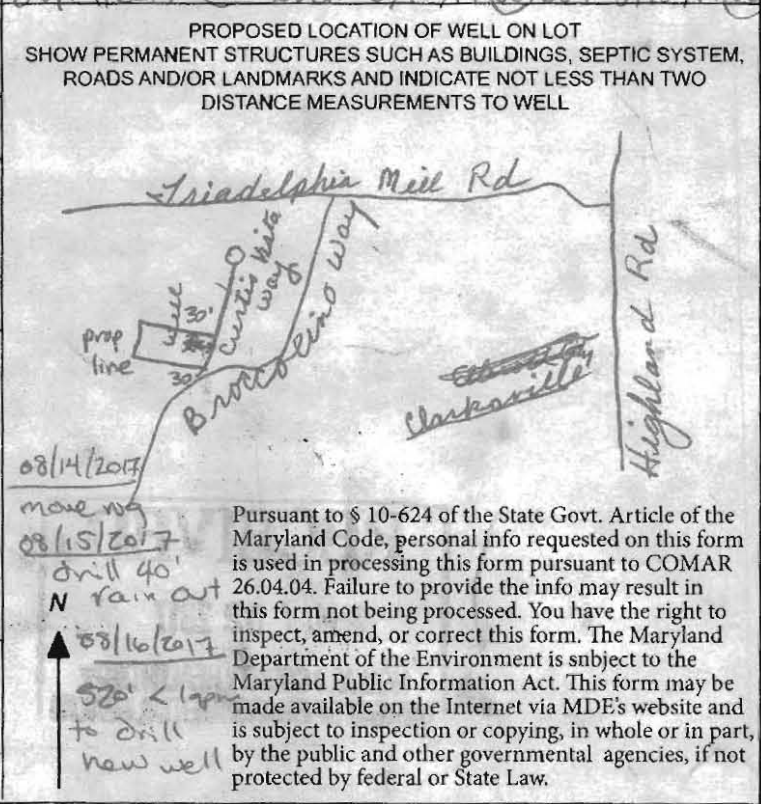 PROPOSED LOCATION OF WELL ON LOT
SHOW PERMANENT STRUCTURES SUCH AS BUILDINGS, SEPTIC SYSTEM,
ROADS AND/OR LANDMARKS AND INDICATE NOT LESS THAN TWO
DISTANCE MEASUREMENTS TO WELL
Triadelphia Mill Rd
Curtis Vista
Way
Broccolino Way
Highland Rd
well
30'
prop
line
30'
Clarksville
08/14/2017
move rig
08/15/2017
drill 40'
rain out
N
08/16/2017
520' < 1gpm
to drill
new well
Pursuant to § 10-624 of the State Govt. Article of the
Maryland Code, personal info requested on this form
is used in processing this form pursuant to COMAR
26.04.04. Failure to provide the info may result in
this form not being processed. You have the right to
inspect, amend, or correct this form. The Maryland
Department of the Environment is snbject to the
Maryland Public Information Act. This form may be
made available on the Internet via MDE's website and
is subject to inspection or copying, in whole or in part,
by the public and other governmental agencies, if not
protected by federal or State Law.